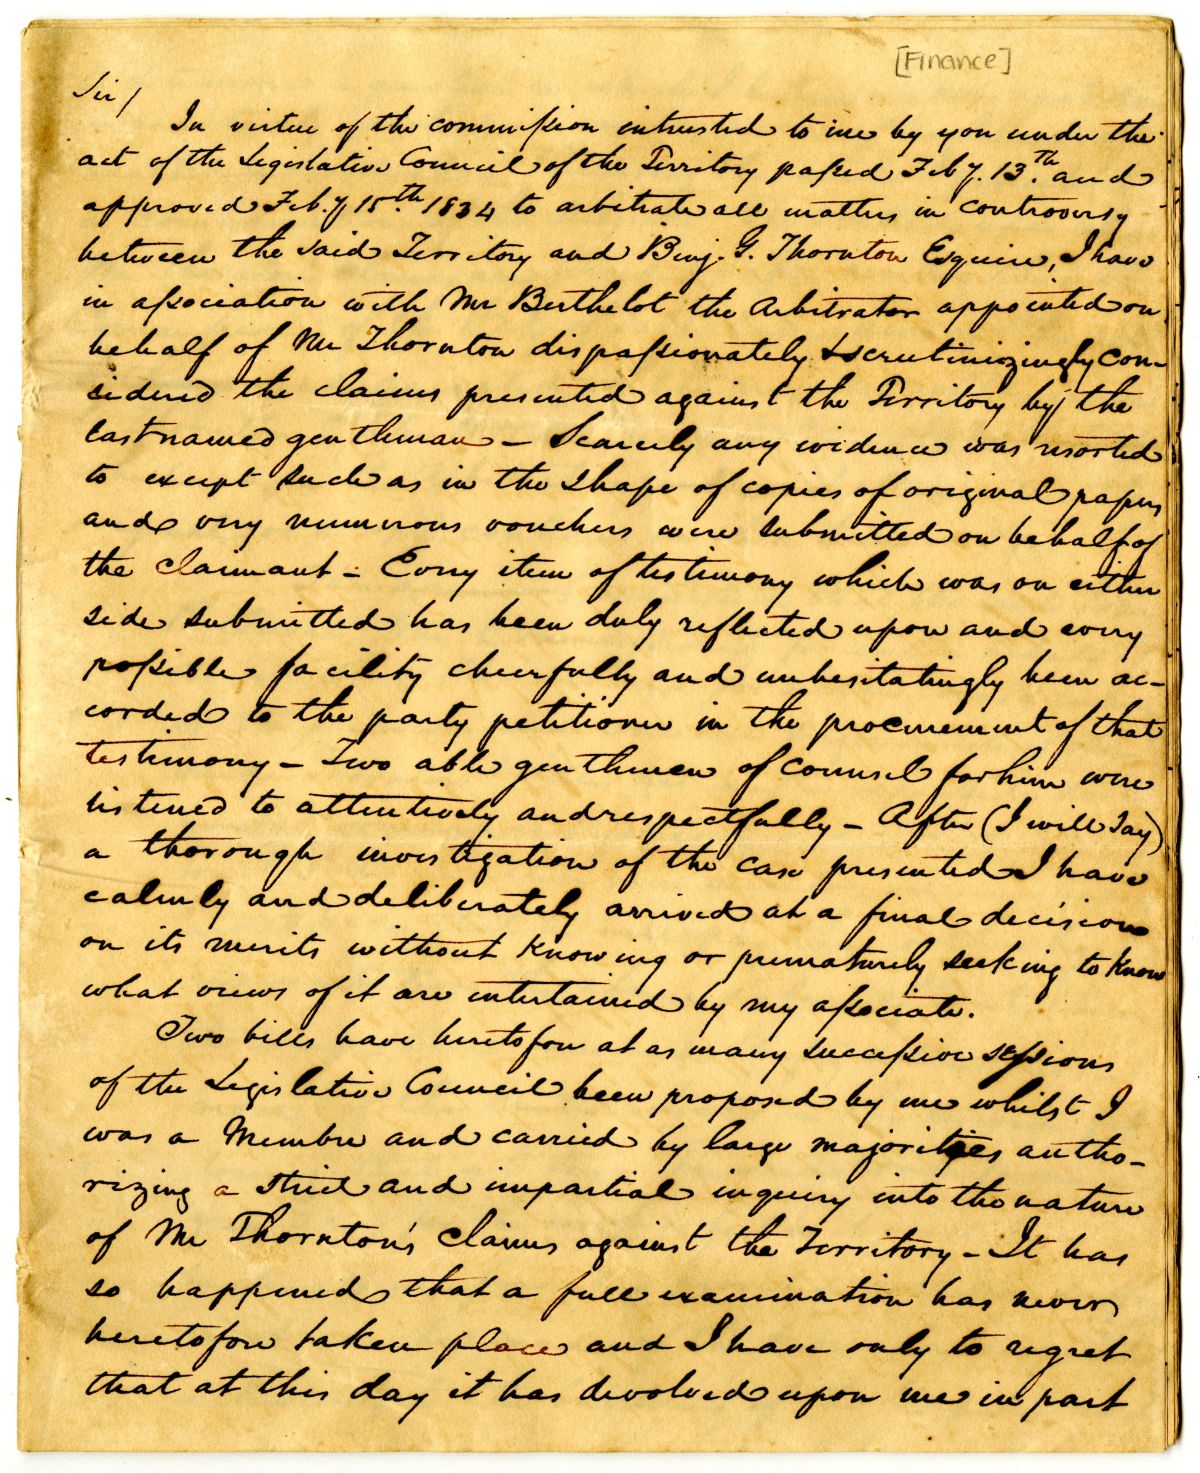 [Finance]
Sir/
In virtue of the commission intrusted to me by you under the
act of the Legislative Council of the Territory passed Feby. 13.th and
approved Feb.y 15.th 1834 to arbitrate all matters in controversy
between the said Territory and Benj. G. Thornton Esquire, I have
in association with Mr Berthelot the Arbitrator appointed on
behalf of Mr Thornton dispassionately & scrutinizingly con-
sidered the claims presented against the Territory by the
last named gentleman – Scarcely any evidence was resorted
to except such as in the shape of copies of original papers
and very numerous vouchers were submitted on behalf of
the claimant – Every item of testimony which was on either
side submitted has been duly reflected upon and every
possible facility cheerfully and unhesitatingly been ac-
corded to the party petitioner in the procurement of that
testimony – Two able gentlemen of counsel for him were
listened to attentively and respectfully – After (I will say)
a thorough investigation of the case presented I have
calmly and deliberately arrived at a final decision
on its merits without knowing or prematurely seeking to know
what views of it are entertained by my associate.
Two bills have heretofore at as many successive sessions
of the Legislative Council been proposed by me whilst I
was a Member and carried by large majorities autho-
rizing a strict and impartial inquiry into the nature
of Mr Thornton's claims against the Territory – It has
so happened that a full examination has never
heretofore taken place and I have only to regret
that at this day it has devolved upon me in part